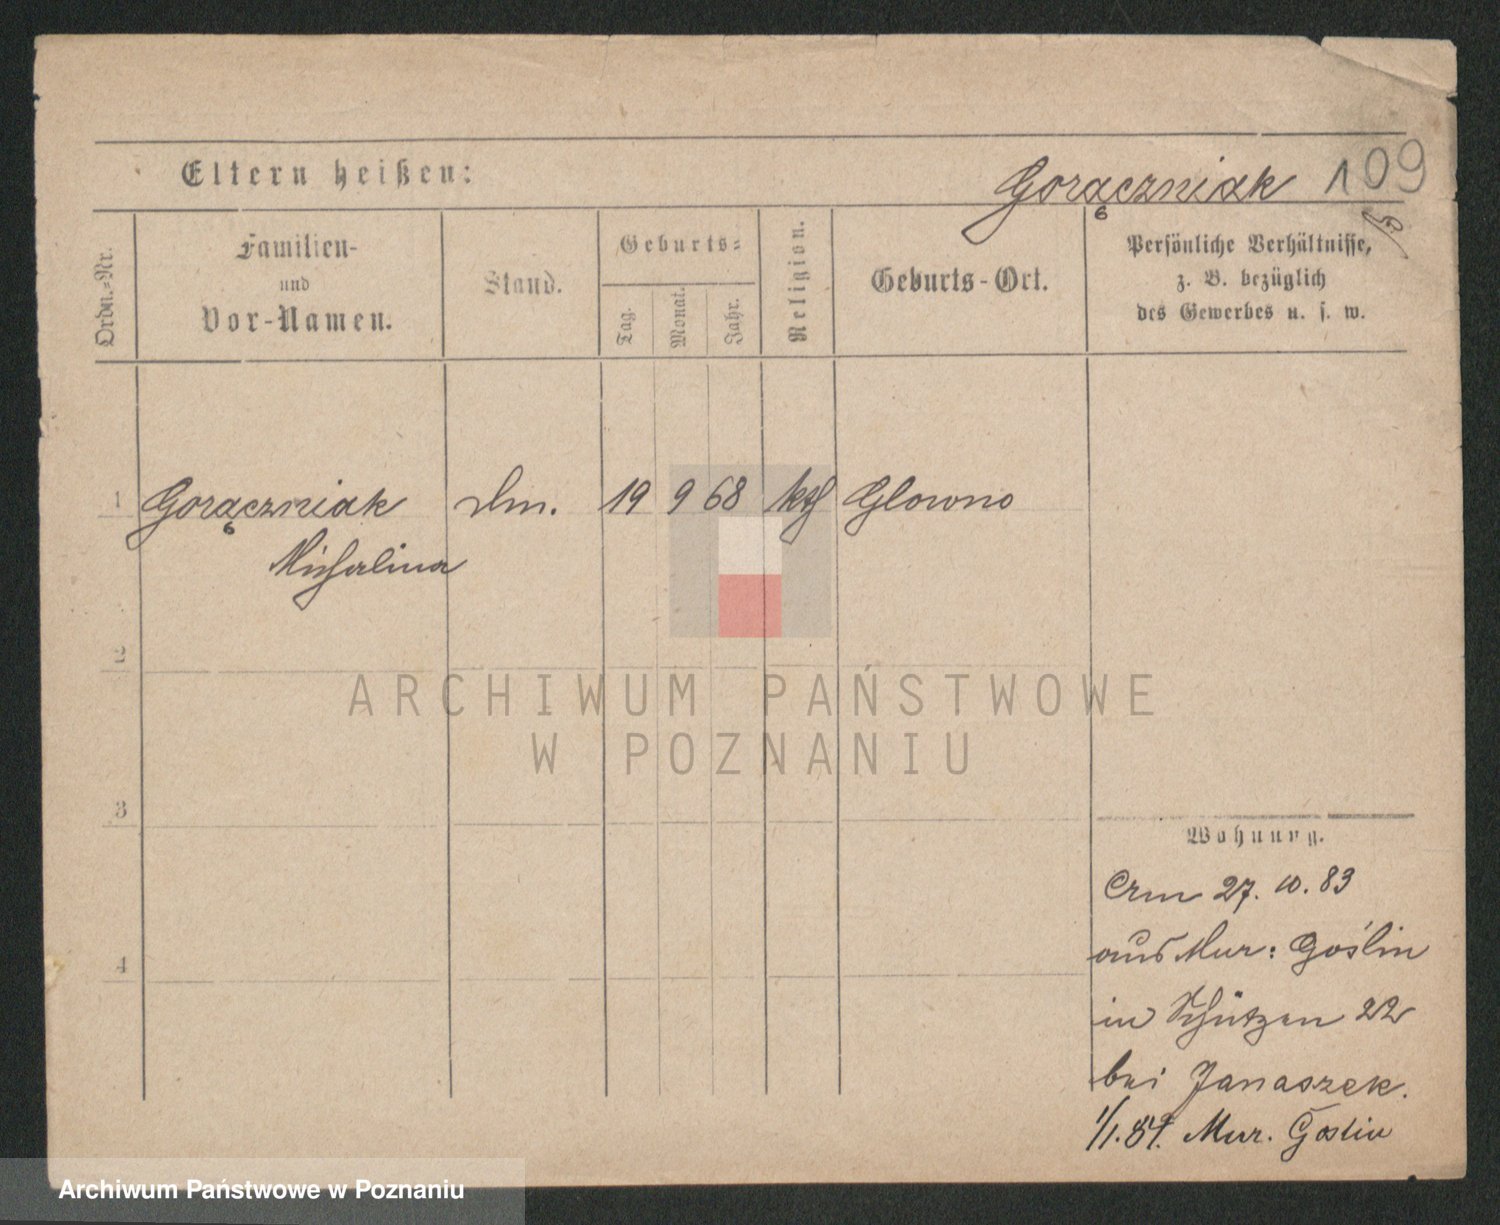 Eltern heißen:
Gorączniak 109
6
Ordn.-Nr.
Familien-
und
Vor-Namen.
Stand.
Geburts-
Tag.
Monat.
Jahr.
Religion.
Geburts-Ort.
Persönliche Verhältnisse,
z. B. bezüglich
des Gewerbes u. s. w.
1 Gorączniak Dm. 19 9 68 kth Glowno
6
Michalina
2
3
4
Wohnung.
27. 10. 83
aus Mur: Goślin
in Schützen 22
bei Janaszek.
1/1. 84. Mur. Goslin
ARCHIWUM PAŃSTWOWE
W POZNANIU
Archiwum Państwowe w Poznaniu